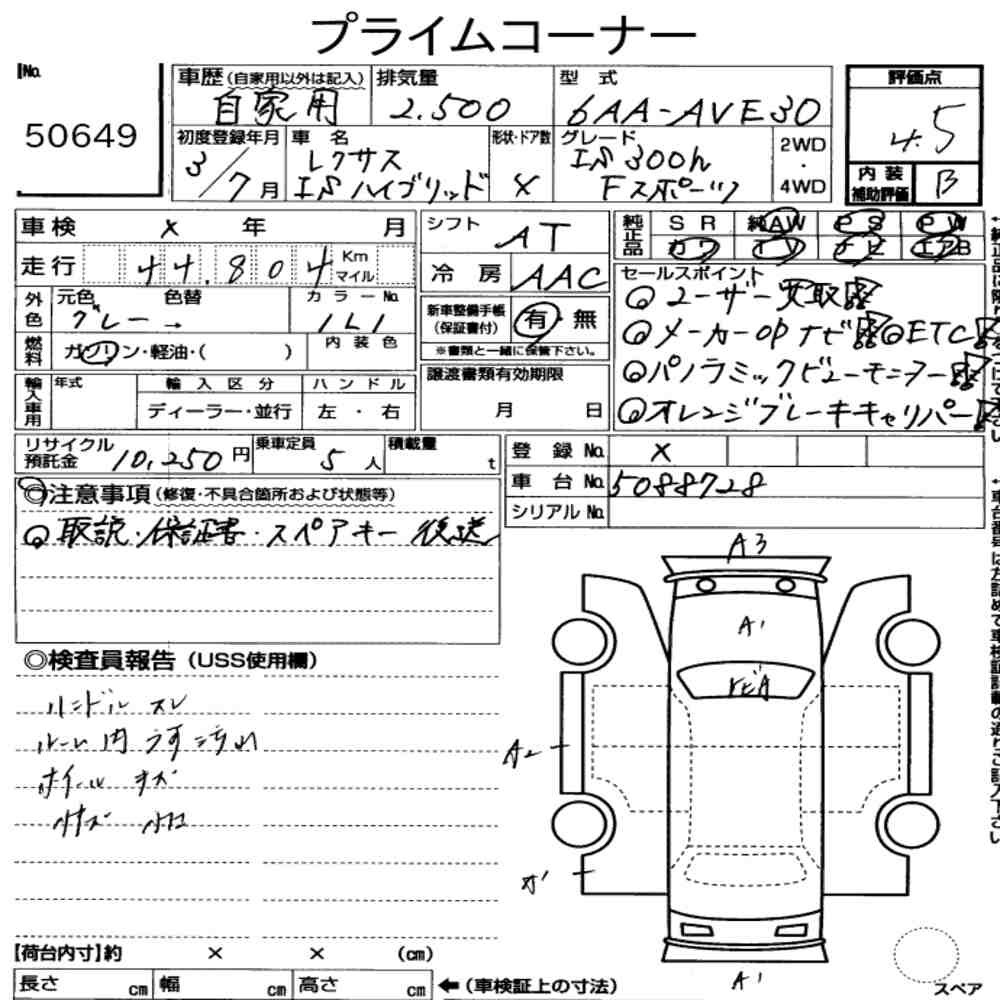 プライムコーナー
No.
50649
車歴(自家用以外は記入) 排気量 型 式 評価点
自家用 2.500 6AA-AVE30 4.5
初度登録年月 車 名 形状・ドア数 グレード 2WD
・
4WD
3/7月 レクサス IS 300h
ISハイブリッド X Fスポーツ
内 装
補助評価 B
車検 X 年 月 シフト AT 純正品 SR 純AW PS PW
走行 44.804 Km
マイル 冷 房 AAC カワ TV ナビ エアB
セールスポイント
外色 元色 色替 カラーNo.
グレー → 1L1
新車整備手帳
(保証書付) 有・無
◎ユーザー買取
◎メーカーOPナビ ◎ETC
◎パノラミックビューモニター
◎オレンジブレーキキャリパー
燃料 ガソリン・軽油・( ) 内 装 色
※書類と一緒に保管下さい。
輸入車用 年式 輸 入 区 分 ハ ン ド ル
ディーラー・並行 左 ・ 右
譲渡書類有効期限
月 日
リサイクル
預託金 10,250円 乗車定員 5人 積載量 t
登 録 No. X
車 台 No. 5088728
シリアル No.
◎注意事項(修復・不具合箇所および状態等)
◎取説・保証書・スペアキー 後送
◎検査員報告(USS使用欄)
ハンドル スレ
ルーム内 うす汚れ
ホイール キズ
A3
A1
トビA
A2
A1
【荷台内寸】約 × × (cm)
長さ cm 幅 cm 高さ cm ←(車検証上の寸法)
スペア